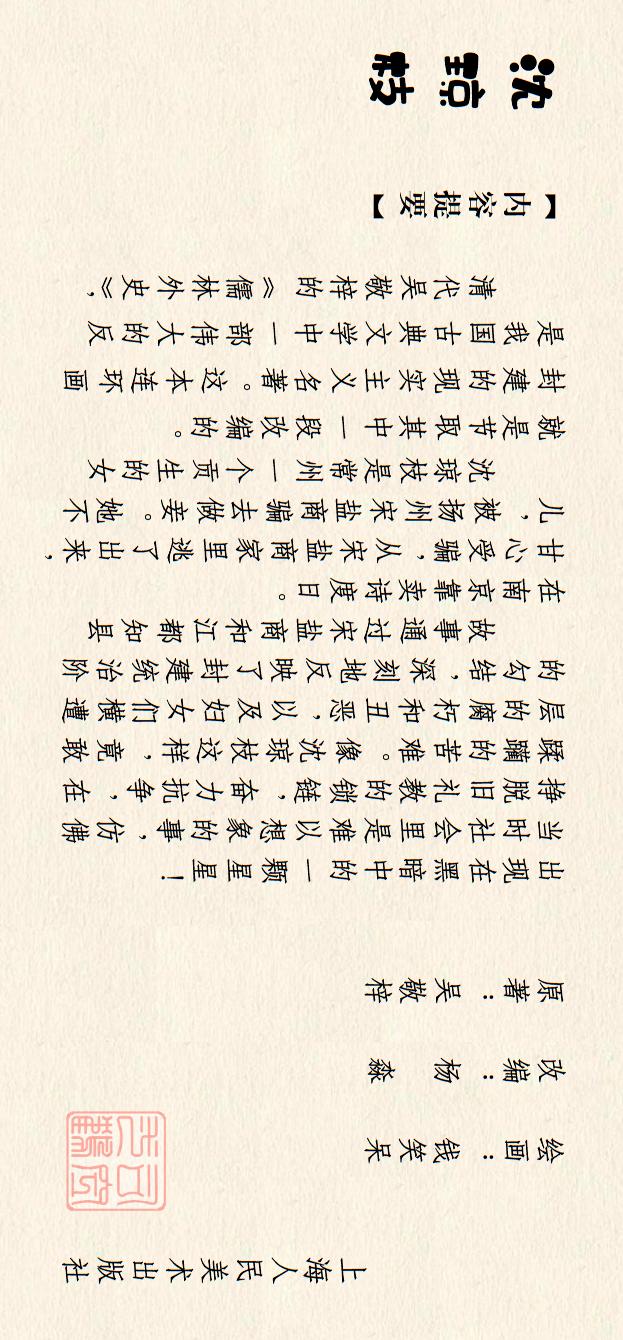 沈琼枝
【内容提要】
清代吴敬梓的《儒林外史》,
是我国古典文学中一部伟大的反
封建的现实主义名著。这本连环画
就是节取其中一段改编的。
沈琼枝是常州一个贡生的女
儿,被扬州宋盐商骗去做妾。她不
甘心受骗,从宋盐商家里逃了出来,
在南京靠卖诗度日。
故事通过宋盐商和江都知县
的勾结,深刻地反映了封建统治阶
层的腐朽和丑恶,以及妇女们横遭
蹂躏的苦难。像沈琼枝这样,竟敢
挣脱旧礼教的锁链,奋力抗争,在
当时社会里是难以想象的事,仿佛
出现在黑暗中的一颗星星!
原著:吴敬梓
改编:杨淼
绘画:钱笑呆
上海人民美术出版社